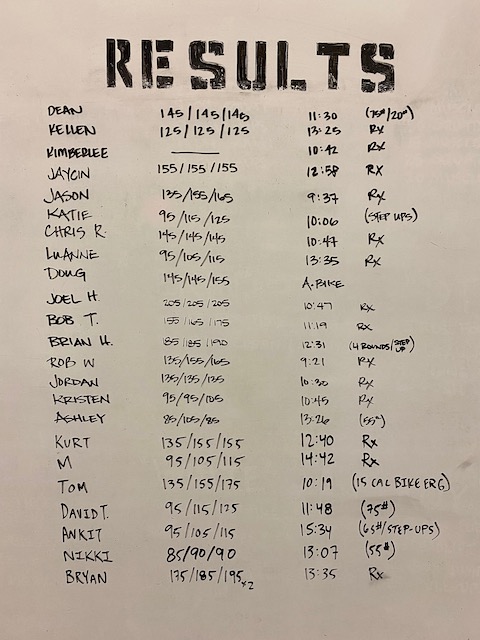 RESULTS
DEAN 145/145/145 11:30 (75#/20")
KELLEN 125/125/125 13:25 Rx
KIMBERLEE —— 10:42 Rx
JAYCIN 155/155/155 12:58 Rx
JASON 135/155/165 9:37 Rx
KATIE 95/115/125 10:06 (STEP UPS)
CHRIS R. 145/145/145 10:47 Rx
LUANNE 95/105/115 13:35 Rx
DOUG 145/145/155 A.BIKE
JOEL H. 205/205/205 10:47 Rx
BOB T. 155/165/175 11:19 Rx
BRIAN H. 185/185/190 12:31 (4 ROUNDS/STEP UP)
ROB W 135/155/165 9:21 Rx
JORDAN 135/135/135 10:30 Rx
KRISTEN 95/95/105 10:45 Rx
ASHLEY 85/105/85 13:26 (55#)
KURT 135/155/155 12:40 Rx
M 95/105/115 14:42 Rx
TOM 135/155/175 10:19 (15 CAL BIKE ERG)
DAVID T. 95/115/125 11:48 (75#)
ANKIT 95/105/115 15:34 (65#/STEP-UPS)
NIKKI 85/90/90 13:07 (55#)
BRYAN 175/185/195x2 13:35 Rx